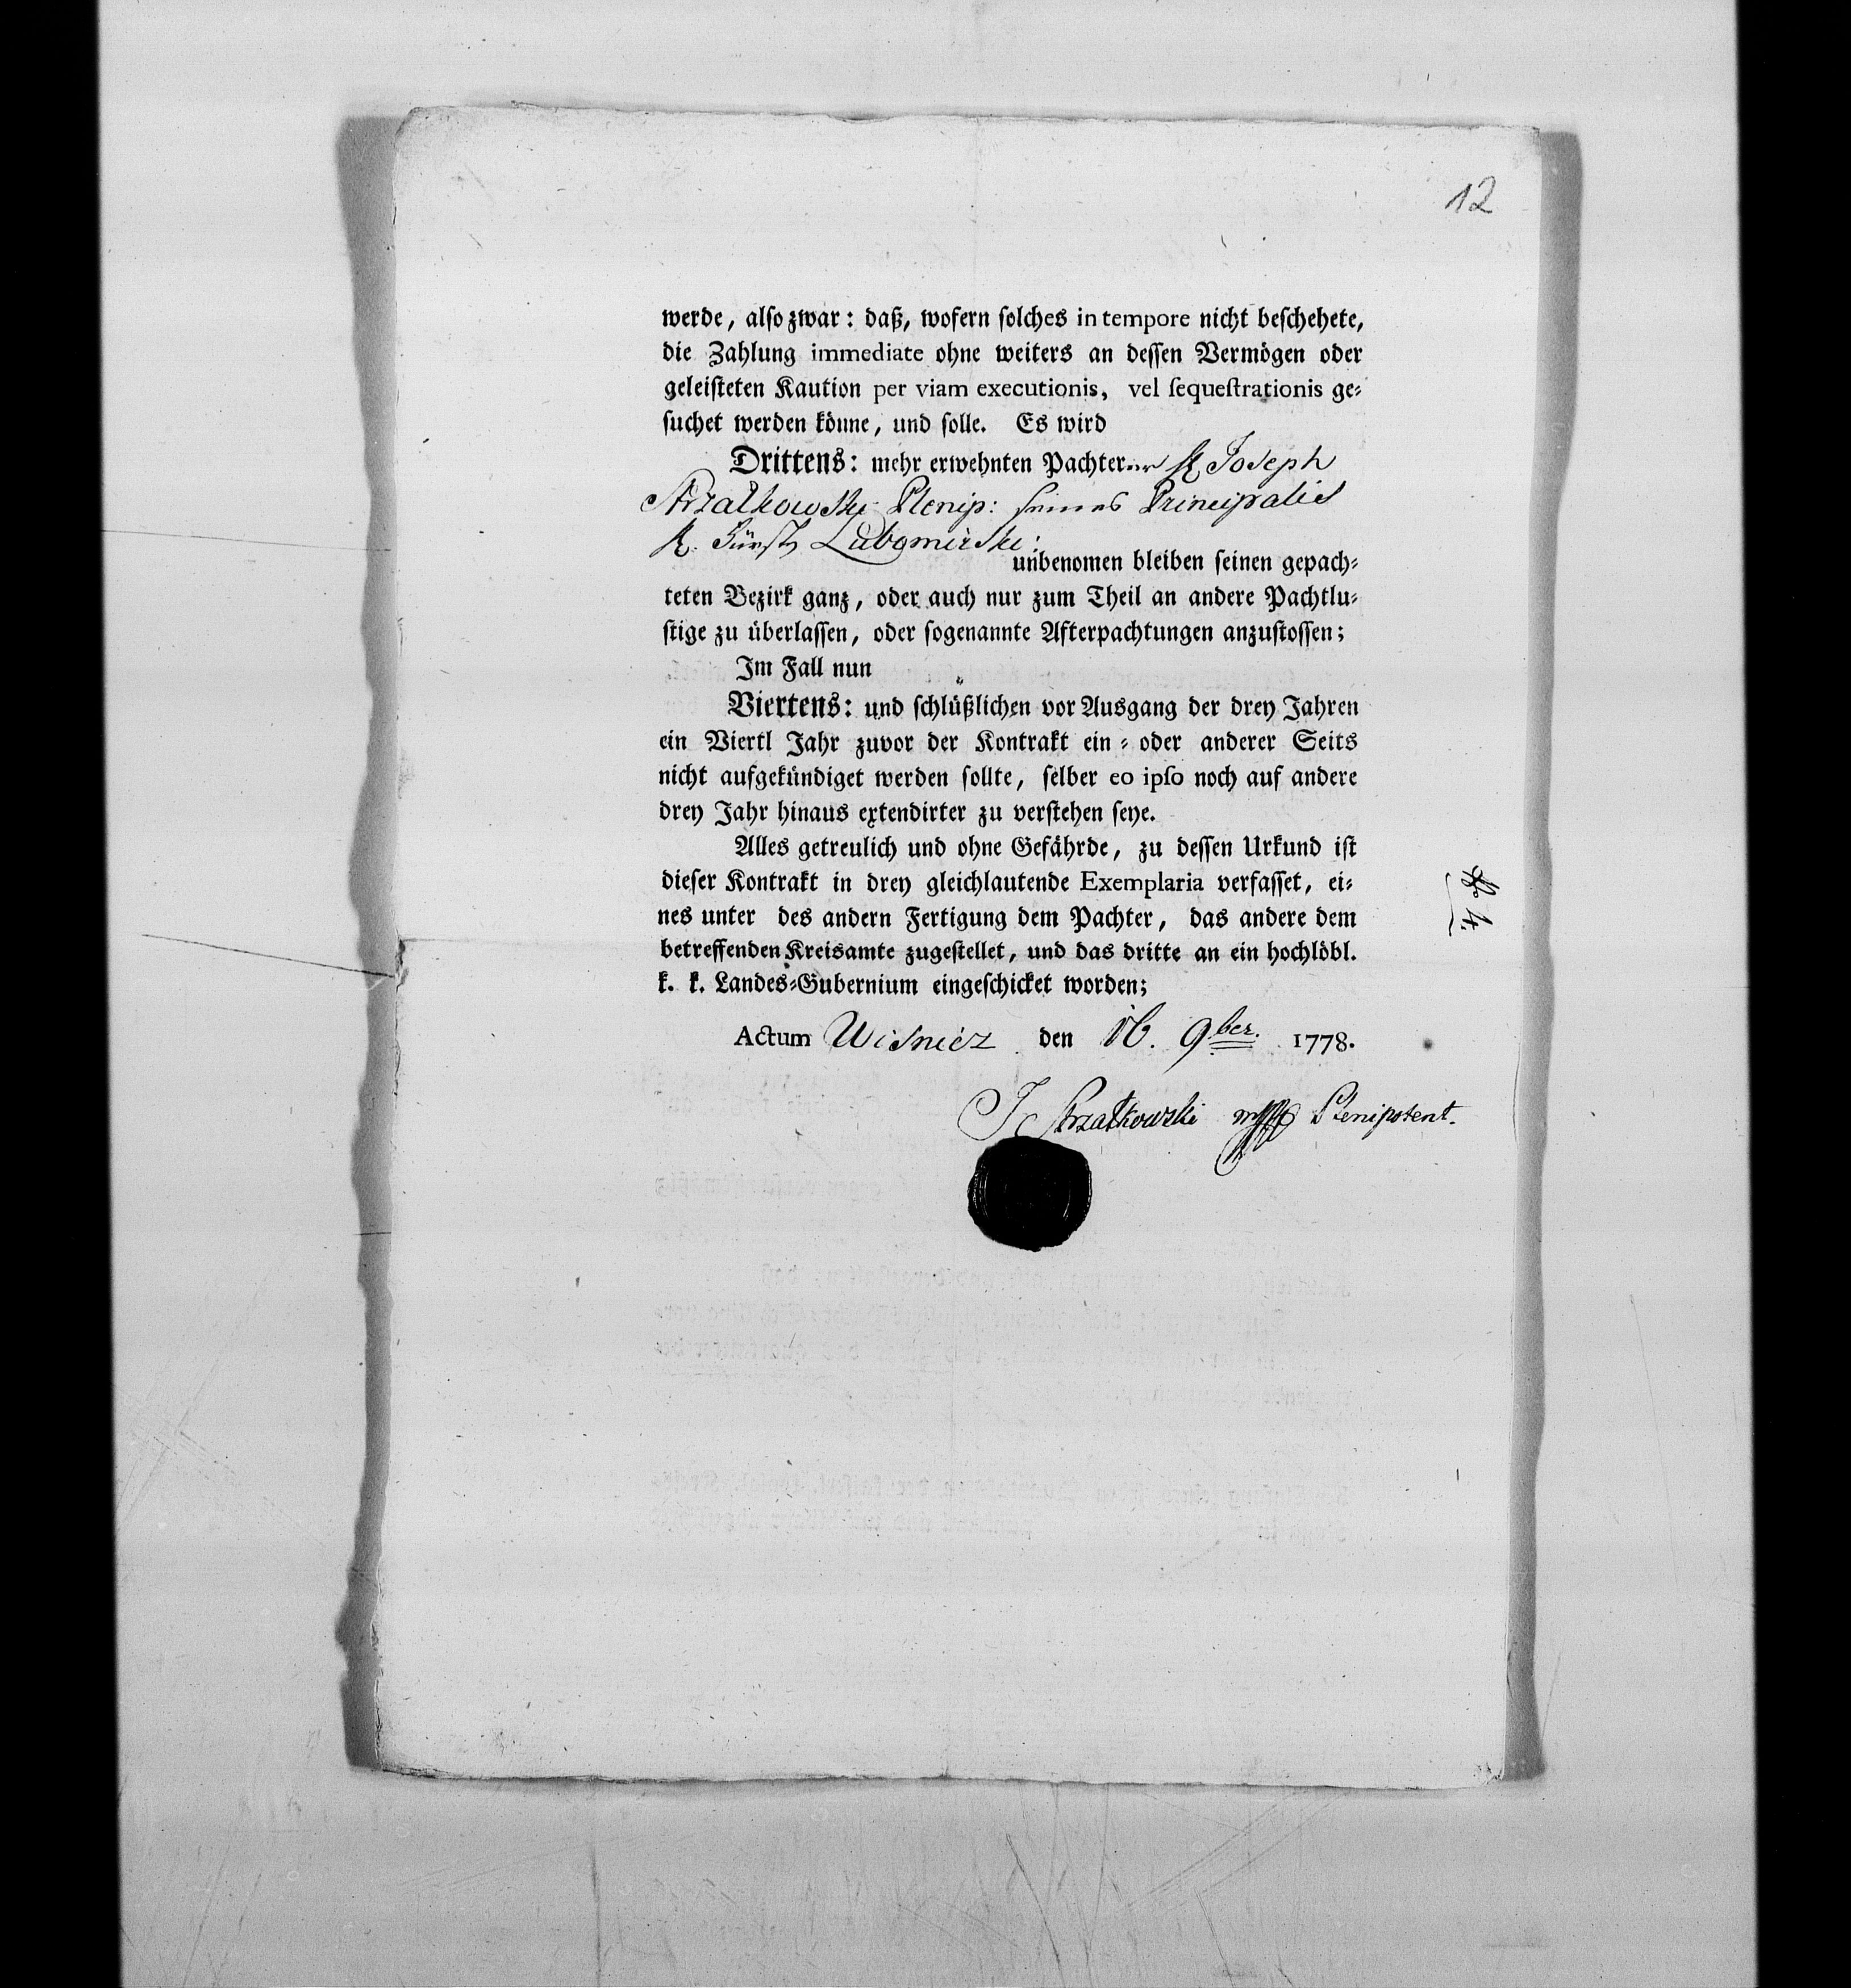 12
werde, also zwar: daß, wofern solches in tempore nicht beschehete,
die Zahlung immediate ohne weiters an dessen Vermögen oder
geleisteten Kaution per viam executionis, vel sequestrationis ge-
suchet werden könne, und solle. Es wird
Drittens: mehr erwehnten Pachter H. Joseph
Strzalkowski Plenip: seines Principalis
H. Fürst Lubomirski:
unbenomen bleiben seinen gepach-
teten Bezirk ganz, oder auch nur zum Theil an andere Pachtlu-
stige zu überlassen, oder sogenannte Afterpachtungen anzustossen;
Im Fall nun
Viertens: und schlüßlichen vor Ausgang der drey Jahren
ein Viertl Jahr zuvor der Kontrakt ein- oder anderer Seits
nicht aufgekündiget werden sollte, selber eo ipso noch auf andere
drey Jahr hinaus extendirter zu verstehen seye.
Alles getreulich und ohne Gefährde, zu dessen Urkund ist
dieser Kontrakt in drey gleichlautende Exemplaria verfasset, ei-
nes unter des andern Fertigung dem Pachter, das andere dem
betreffenden Kreisamte zugestellet, und das dritte an ein hochlöbl.
k. k. Landes-Gubernium eingeschicket worden;
Actum Wisnicz den 16. 9ber. 1778.
J Strzałkowski Plenipotent.